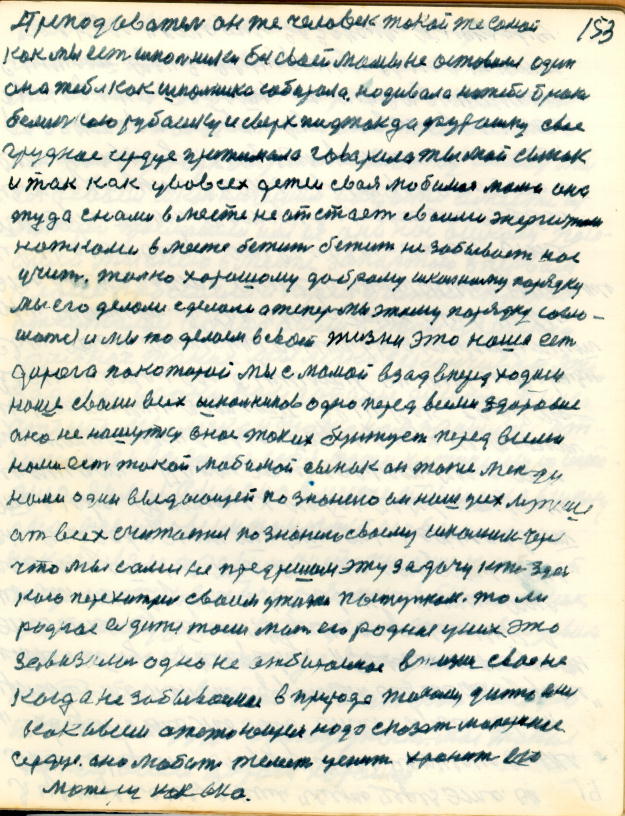 153
Преподователи он же человек такой же самой
как мы ест школники бы своей мамы не оставляя один
она тебя как школника собирала. надивала на тебе брюки
белинкою рубашку и сверх пиджак да фуражку свое
грудное сердце прижимала говарила ты мой сынок
и так как у вовсех детей своя любимая мама она
туда снами вместе не отстает своими энергичными
ножками вместе бежит бежит не забывает нас
учит, толко хорошому доброму школному порядку
мы его делали сделали а теперь мы этому порядку согло-
шаемся и мы то делаем в своей жизни это наша ест
дорога по которой мы с мамой взад вперед ходим
наше своми всех школников одно перед всеми здоровие
оно не на шутку внас таких бунтует перед всеми
нами ест такой любимой сынок он также между
нами один выдающей по знанею он наш ученик лучше
от всех считается по знанею своему школник
что мы сами не предрешам эту задачу кто здес
кого перехитрил своим поступком. то ли
родное дитя толи мат его родная у них это
завязали одно не отбитимое в жизни свое не
когда не забываемое в природе такому дитю
как всем надо сказат материнное
сердце. оно любит жалеет ценит хранит его
матери как око.